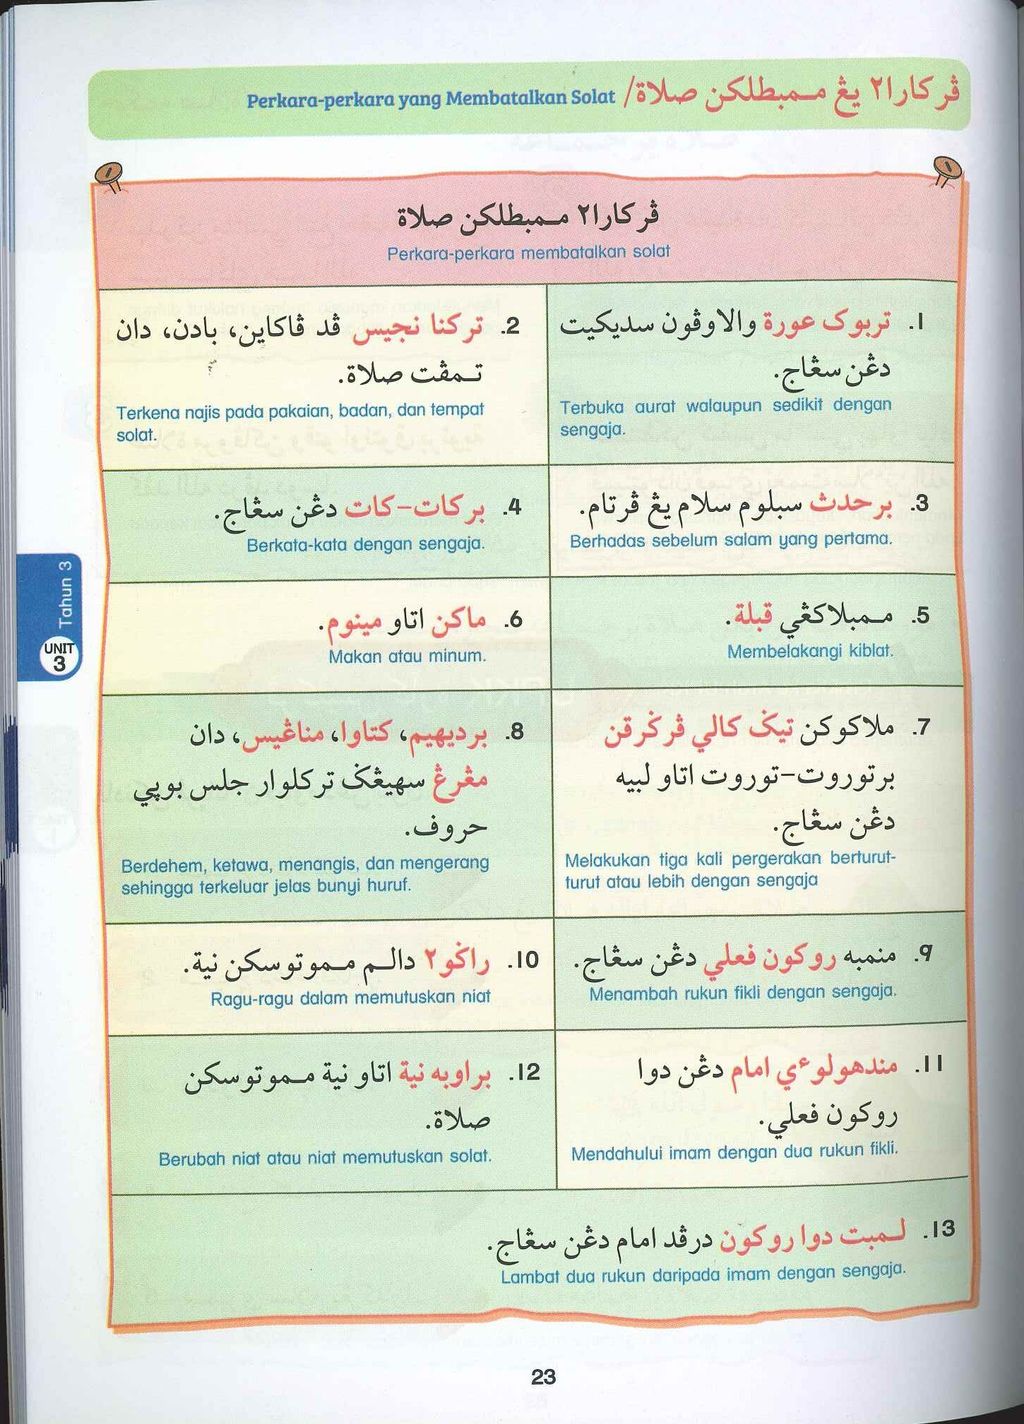 ڤرکارا٢ يڠ ممبطلکن صلاة/ Perkara-perkara yang Membatalkan Solat
ڤرکارا٢ ممبطلکن صلاة
Perkara-perkara membatalkan solat
1. تربوک عورة والاوڤون سديکيت
دڠن سڠاج.
Terbuka aurat walaupun sedikit dengan
sengaja.
2. ترکنا نجيس ڤد ڤاکاين، بادن، دان
تمڤت صلاة.
Terkena najis pada pakaian, badan, dan tempat
solat.
3. برحدث سبلوم سلام يڠ ڤرتام.
Berhadas sebelum salam yang pertama.
4. برکات-کات دڠن سڠاج.
Berkata-kata dengan sengaja.
5. ممبلاکڠي قبلة.
Membelakangi kiblat.
6. ماکن اتاو مينوم.
Makan atau minum.
7. ملاکوکن تيݢ کالي ڤرݢرقن
برتوروت-توروت اتاو لبيه
دڠن سڠاج.
Melakukan tiga kali pergerakan berturut-
turut atau lebih dengan sengaja
8. برديهيم، کتاوا، مناڠيس، دان
مڠرڠ سهيڠݢ ترکلوار جلس بوڽي
حروف.
Berdehem, ketawa, menangis, dan mengerang
sehingga terkeluar jelas bunyi huruf.
9. منمبه روکون فعلي دڠن سڠاج.
Menambah rukun fikli dengan sengaja.
10. راݢو٢ دالم مموتوسکن نية.
Ragu-ragu dalam memutuskan niat
11. مندهولوءي امام دڠن دوا
روکون فعلي.
Mendahului imam dengan dua rukun fikli.
12. براوبه نية اتاو نية مموتوسکن
صلاة.
Berubah niat atau niat memutuskan solat.
13. لمبت دوا روکون درڤد امام دڠن سڠاج.
Lambat dua rukun daripada imam dengan sengaja.
Tahun 3
UNIT
3
23